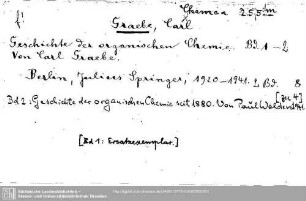 Chemica 255 fm
Graebe, Carl
Geschichte der organischen Chemie. Bd. 1-2
Von Carl Graebe.
Berlin, Julius Springer, 1920-1941. 2 Bd. 8
[zu 4]
Bd 2: Geschichte der organischen Chemie seit 1880. Von Paul Walden 1941
[Bd 1: Ersatzexemplar.]